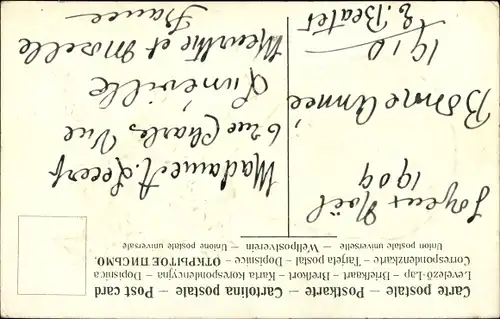 Carte postale – Postkarte – Cartolina postale – Post card
Levelező-Lap – Brefkaart – Brefkort – Karta korespondencyjna – Dopisnica
Correspondenzkarte – Tarjeta postal – Dopisnice – ОТКРЫТОЕ ПИСЬМО.
Union postale universelle – Weltpostverein – Unione postale universale
Joyeux Noël
1909
Bonne Année
1910
Madame A. Lecerf
6 rue Charles Vue
Lunéville
Meurthe et Moselle
France